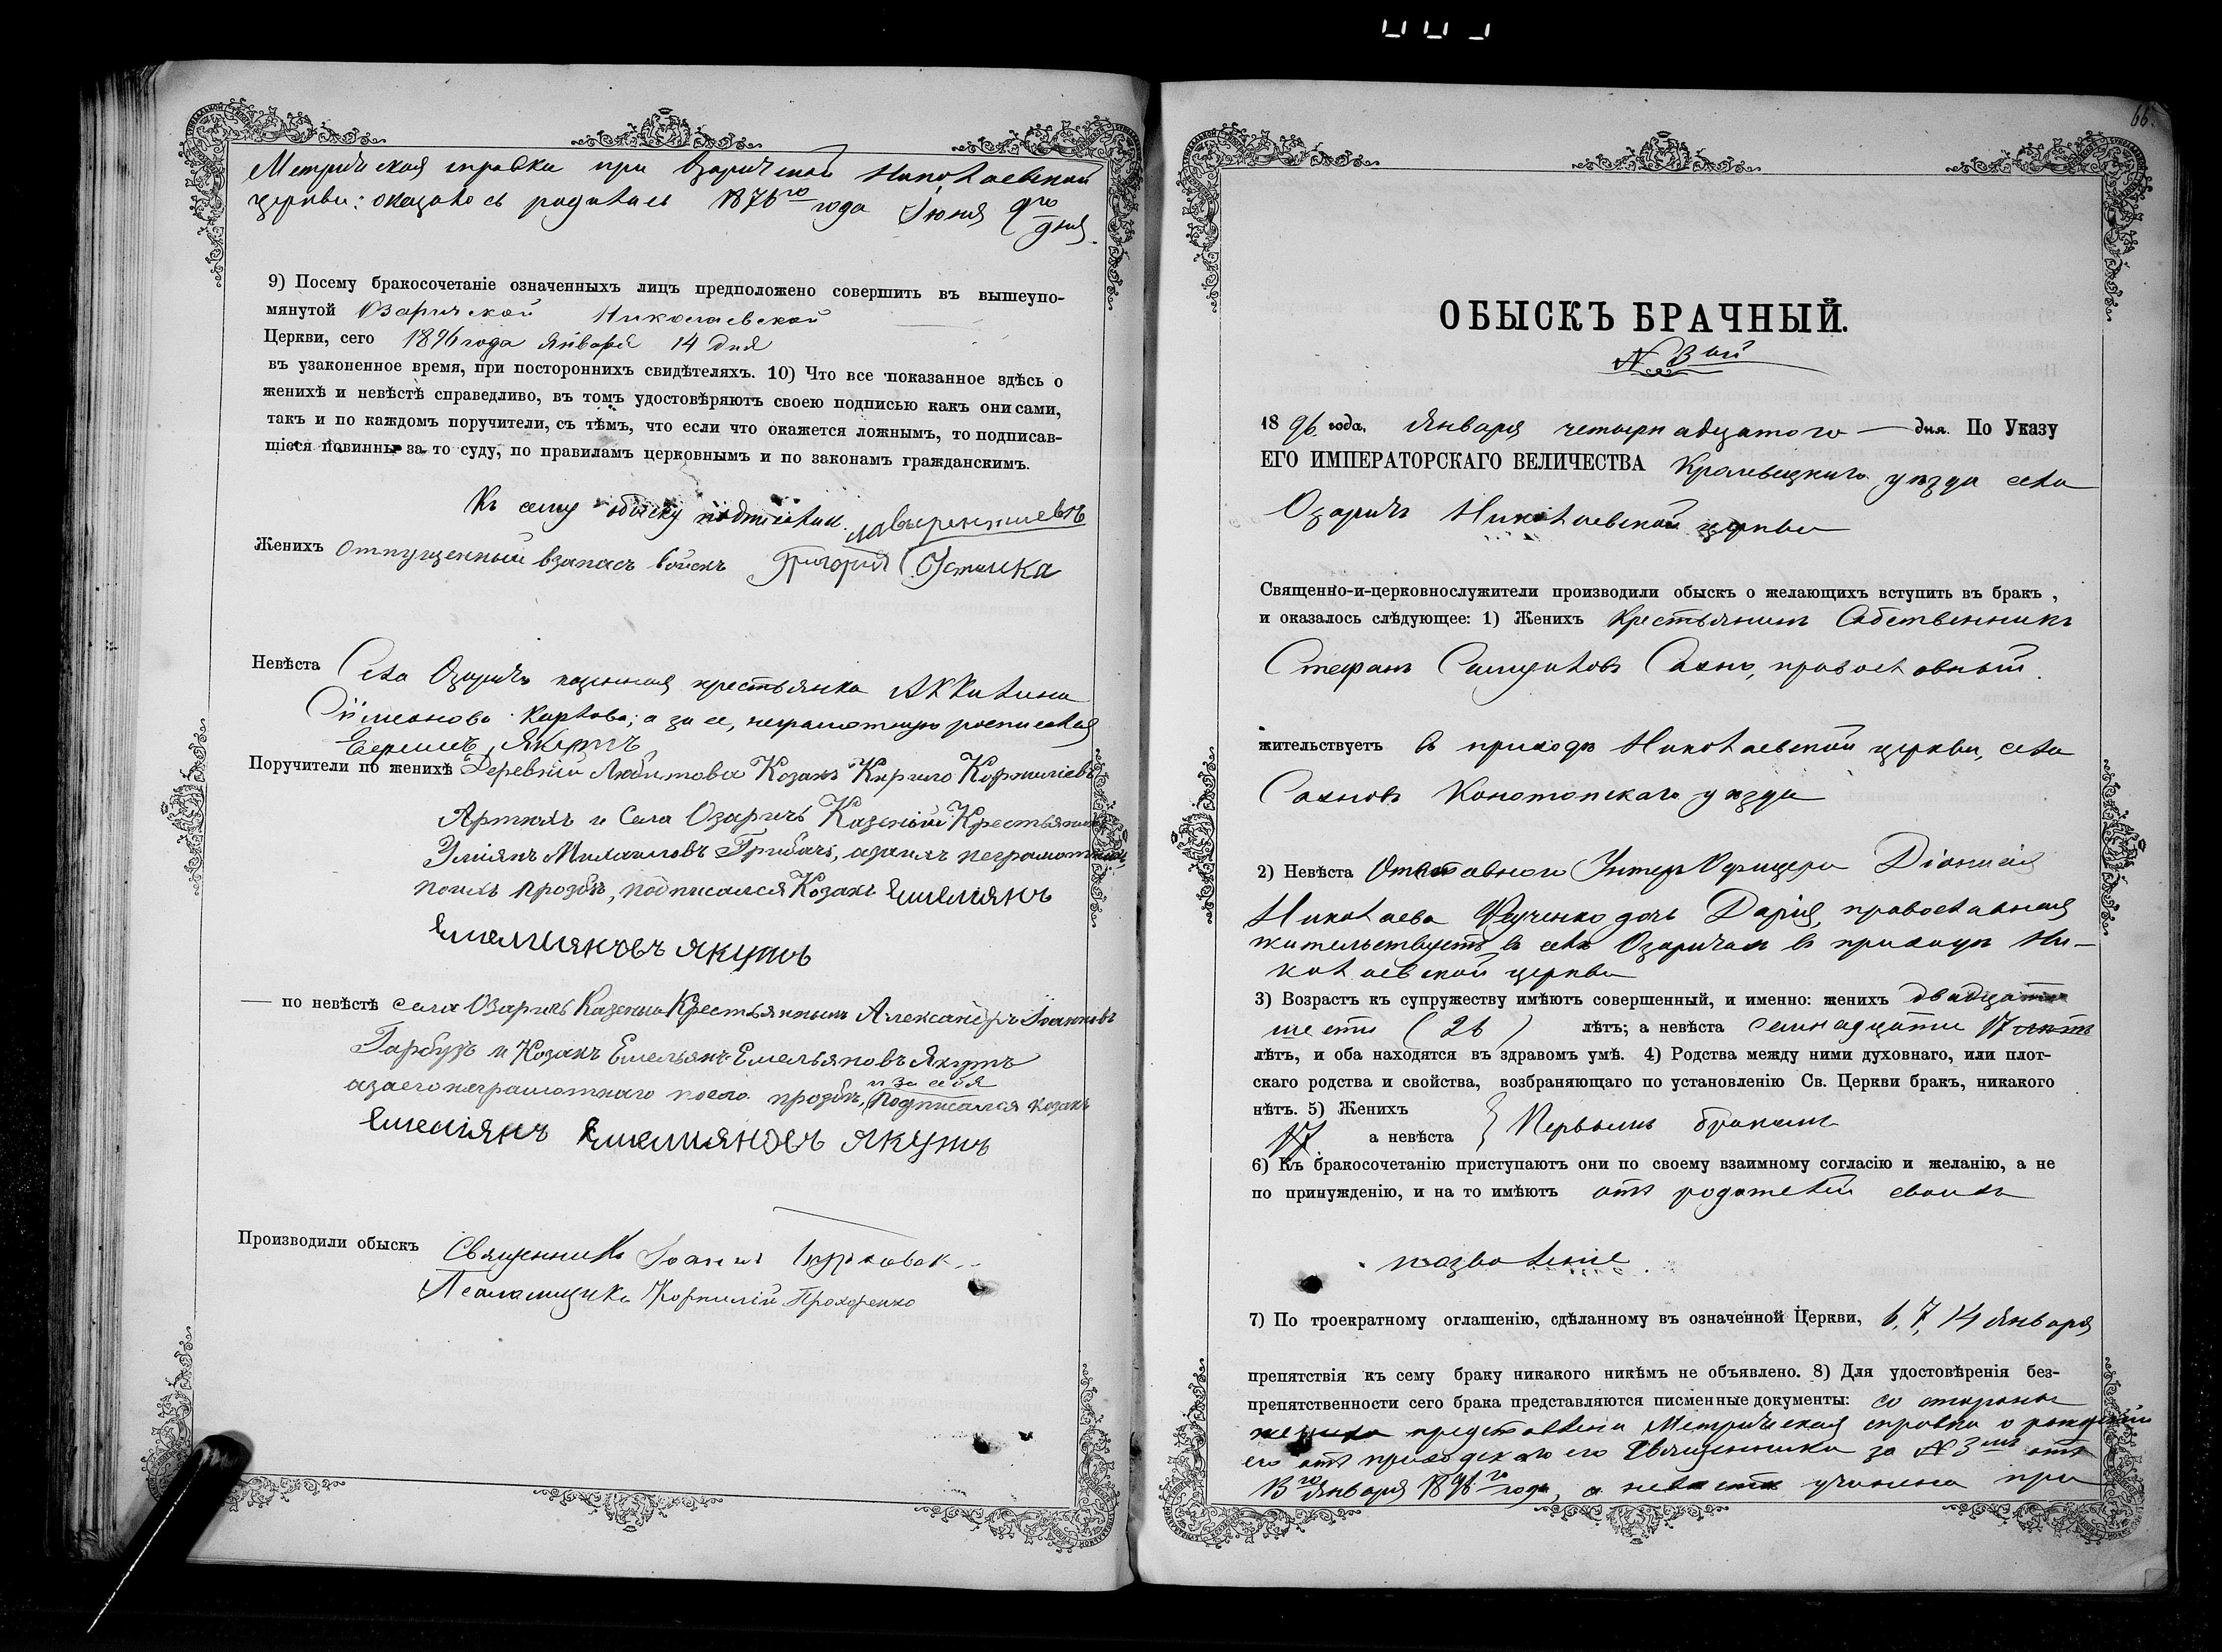 Метрическая справка при Озаричской Николаевской
церкви: оказалось родилась 1876го года Іюня 9го
дня.
9) Посему бракосочетаніе означенныхъ лицъ предположено совершить въ вышеупо-
мянутой Озаричской Николаевской
Церкви, сего 1896 года Января 14 дня
въ узаконенное время, при постороннихъ свидѣтеляхъ. 10) Что все показанное здѣсь о
женихѣ и невѣстѣ справедливо, въ томъ удостовѣряютъ своею подписью какъ они сами,
такъ и по каждомъ поручители, съ тѣмъ, что если что окажется ложнымъ, то подписав-
шіеся повинны за то суду, по правиламъ церковнымъ и по законамъ гражданскимъ.
Къ сему обыску подписались
Лаврентиевъ
Женихъ Отпущенный взапасъ войскъ Григорій Устишка
Невѣста Села Озаричъ казенная крестьянка Аккилина
Симеонова Карпова; а за ее, неграмотную росписался
Якутъ
Поручители по женихѣ Деревни Любитова Козакъ Кирило Корнилієвъ
и Села Озаричъ Казеной Крестьянинъ
Михаиловъ Грибачъ, азаихъ неграмотныхъ,
поихъ прозбѣ, подписался Козакъ Емелиянъ
Емелияновъ Якутъ
— по невѣстѣ села Озаричъ Казеные Крестьянинъ Александръ Іоанновъ
Гарбузъ и Козакъ Емельянъ Емельяновъ Якутъ
и за себя
азаего неграмотнаго поего прозбѣ, Подписался козакъ
Емелиянъ Емелияновъ Якутъ
Производили обыскъ Священникъ Іоаннъ
Псаломщикъ Корнилій Прохоренко
66.
ОБЫСКЪ БРАЧНЫЙ.
N 3ий
1896 года, Января четырнадцатого — дня. По Указу
ЕГО ИМПЕРАТОРСКАГО ВЕЛИЧЕСТВА Кролевецкаго уѣзда села
Озаричъ Николаевской церкви
Священно-и-церковнослужители производили обыскъ о желающихъ вступить въ бракъ ,
и оказалось слѣдующее: 1) Женихъ Крестьянинъ Собственникъ
Стефанъ Самуиловъ Сахно, православный.
жительствуетъ въ приходѣ Николаевской церкви, села
Сахновъ Конотопскаго уѣзда
2) Невѣста Отставного Унтеръ Офицера Діонисія
Николаева дочь Дарія, православная
жительствуетъ въ селѣ Озаричахъ въ приходѣ Ни-
колаевской церкви
3) Возрастъ къ супружеству имѣютъ совершенный, и именно: женихъ двадцати
шести (26) лѣтъ; а невѣста семнадцати 17 лѣтъ
лѣтъ, и оба находятся въ здравомъ умѣ. 4) Родства между ними духовнаго, или плот-
скаго родства и свойства, возбраняющаго по установленію Св. Церкви бракъ, никакого
нѣтъ. 5) Женихъ
17 а невѣста } Первымъ бракомъ
6) Къ бракосочетанію приступаютъ они по своему взаимному согласію и желанію, а не
по принужденію, и на то имѣютъ отъ родителей своихъ
позволеніе.
7) По троекратному оглашенію, сдѣланному въ означенной Церкви, 6, 7, 14 Января
препятствія къ сему браку никакого никѣмъ не объявлено. 8) Для удостовѣренія без-
препятственности сего брака представляются писменные документы: со стороны
жениха представлена Метрическая справка о рожденіи
его отъ приходскаго его Священника за N 3мъ отъ
13го Января 1896го года, а невѣстѣ учинена при